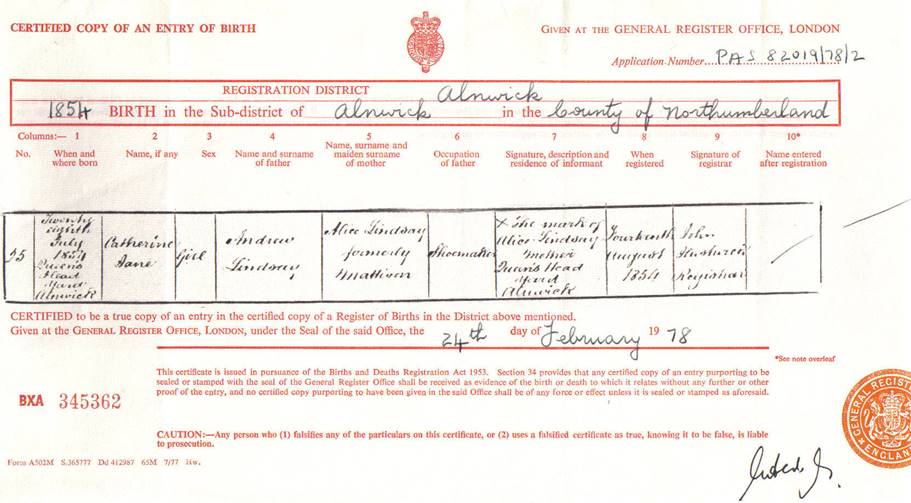 CERTIFIED COPY OF AN ENTRY OF BIRTH
GIVEN AT THE GENERAL REGISTER OFFICE, LONDON
Application Number PAS 82019/78/2
REGISTRATION DISTRICT Alnwick
1854 BIRTH in the Sub-district of Alnwick in the County of Northumberland
Columns:— 1 2 3 4 5 6 7 8 9 10*
No. When and where born Name, if any Sex Name and surname of father Name, surname and maiden surname of mother Occupation of father Signature, description and residence of informant When registered Signature of registrar Name entered after registration
Twenty eighth July 1854 Queens Head Yard Alnwick
Catherine Jane
Girl
Andrew Lindsay
Alice Lindsay formerly Mattison
Shoemaker
X The mark of Alice Lindsay mother Queen's Head Yard Alnwick
Fourteenth August 1854
John Registrar
CERTIFIED to be a true copy of an entry in the certified copy of a Register of Births in the District above mentioned.
Given at the GENERAL REGISTER OFFICE, LONDON, under the Seal of the said Office, the 24th day of February 1978
*See note overleaf
This certificate is issued in pursuance of the Births and Deaths Registration Act 1953. Section 34 provides that any certified copy of an entry purporting to be
sealed or stamped with the seal of the General Register Office shall be received as evidence of the birth or death to which it relates without any further or other
proof of the entry, and no certified copy purporting to have been given in the said Office shall be of any force or effect unless it is sealed or stamped as aforesaid.
BXA 345362
CAUTION:—Any person who (1) falsifies any of the particulars on this certificate, or (2) uses a falsified certificate as true, knowing it to be false, is liable
to prosecution.
Form A502M S.365777 Dd 412987 65M 7/77 Hw.
GENERAL REGISTER
ENGLAND